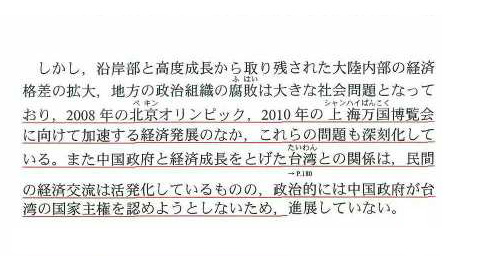 しかし，沿岸部と高度成長から取り残された大陸内部の経済
格差の拡大，地方の政治組織の腐敗は大きな社会問題となって
おり，2008年の北京オリンピック，2010年の上海万国博覧会
に向けて加速する経済発展のなか，これらの問題も深刻化して
いる。また中国政府と経済成長をとげた台湾との関係は，民間
→P.180
の経済交流は活発化しているものの，政治的には中国政府が台
湾の国家主権を認めようとしないため，進展していない。